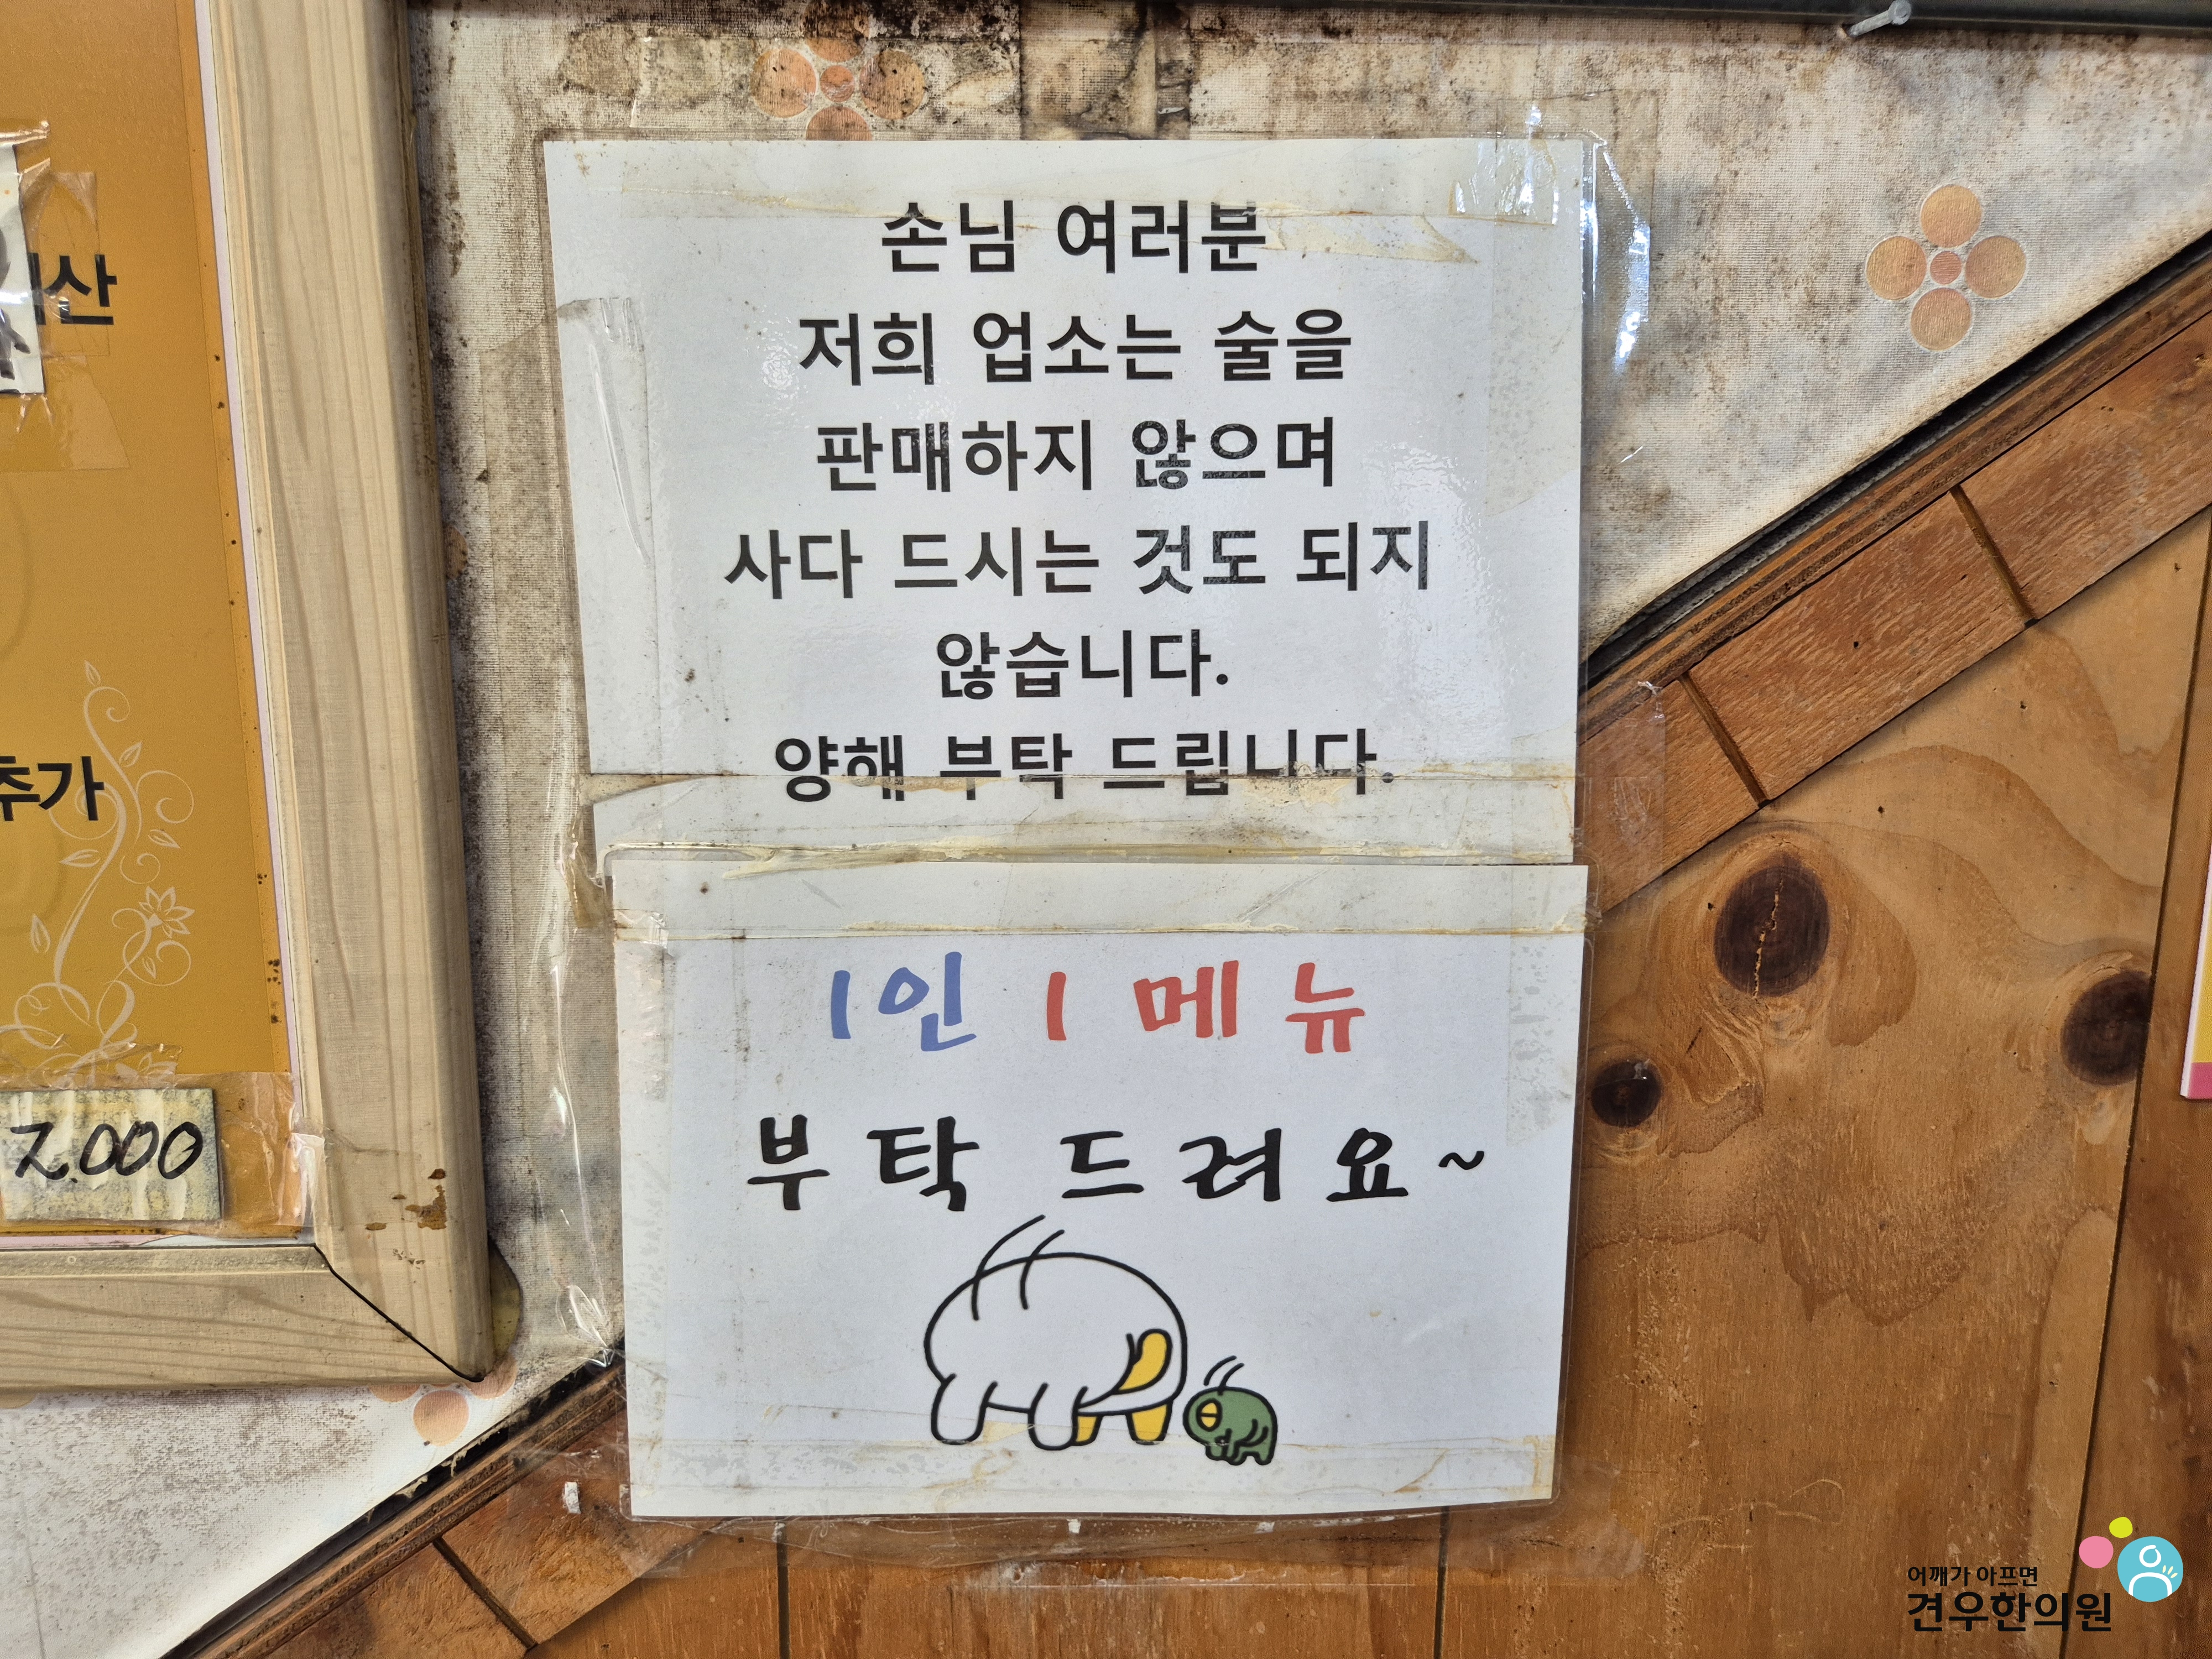 추가
7.000
손님 여러분
저희 업소는 술을
판매하지 않으며
사다 드시는 것도 되지
않습니다.
양해 부탁 드립니다.
1인 1 메뉴
부탁 드려요~
어깨가 아프면
견우한의원